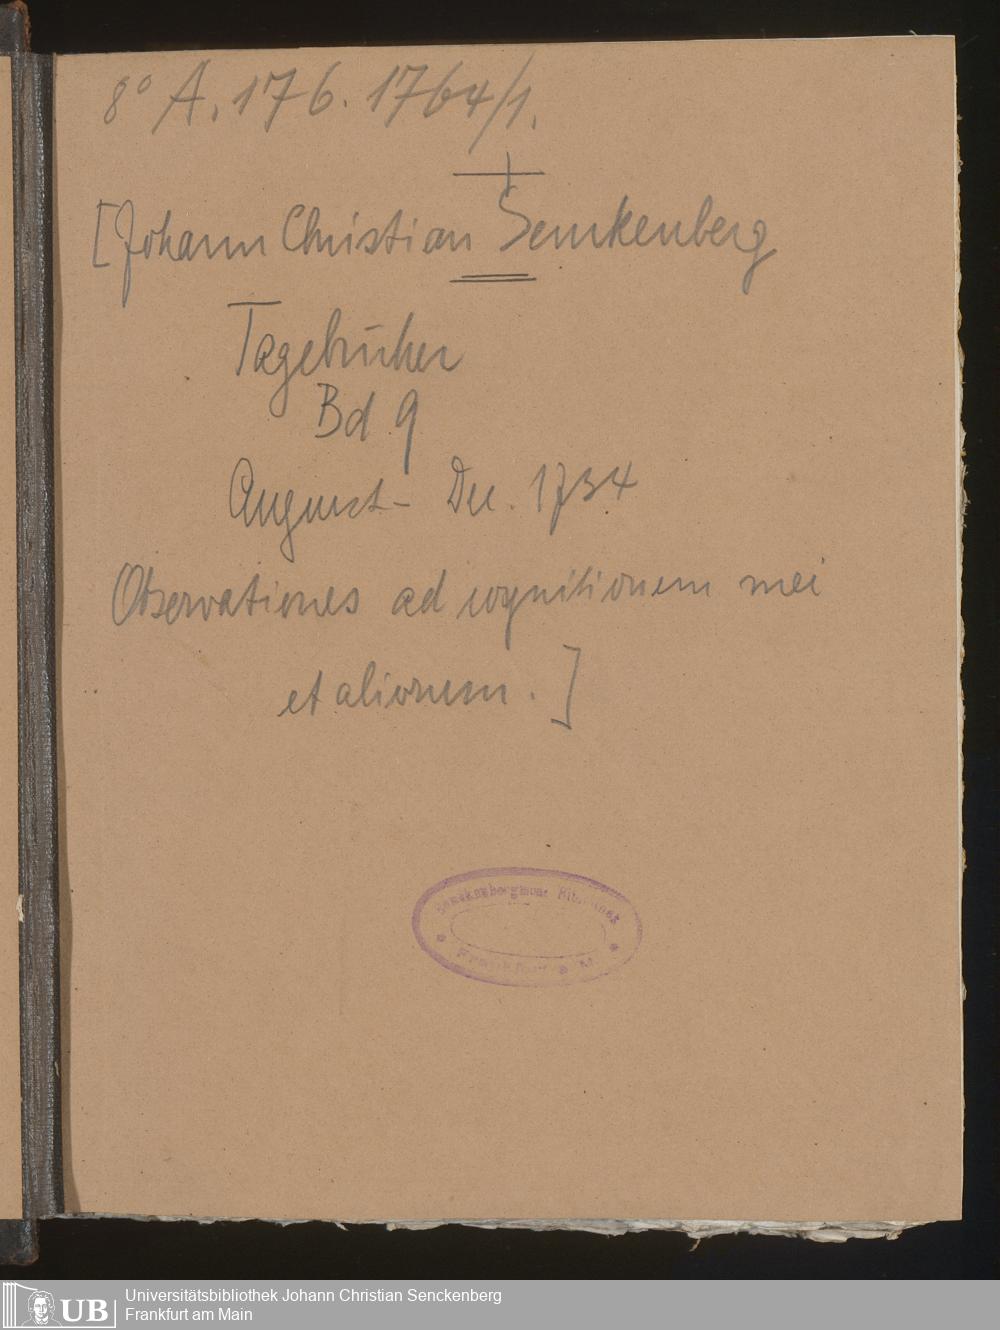 8° A. 176. 1764/1.
[Johann Christian Senckenberg
Tagebücher
Bd 9
August - Dec. 1734
Observationes ad cognitionem mei
et aliorum.]
Senckenbergische Bibliothek
Frankfurt a. M.
UB
Universitätsbibliothek Johann Christian Senckenberg
Frankfurt am Main